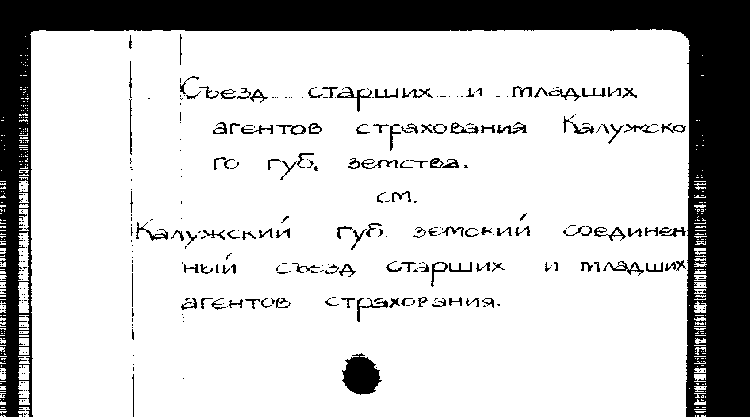 Съезд старших и младших
агентов страхования Калужско
го губ. земства.
см.
Калужский губ. земский соединен
ный съезд старших и младших
агентов страхования.